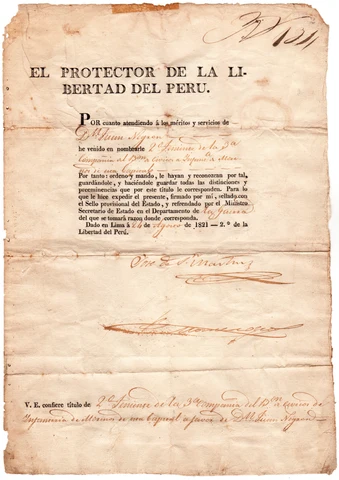 EL PROTECTOR DE LA LI-
BERTAD DEL PERU.
POR cuanto atendiendo á los méritos y servicios de
Dn. Juan
he venido en nombrarle 2º Teniente de la 3ª
Compañia
Por tanto: ordeno y mando, le hayan y reconozcan por tal,
guardándole, y haciéndole guardar todas las distinciones y
preeminencias que por este título le corresponden. Para lo
que le hice expedir el presente, firmado por mí, sellado con
el Sello provisional del Estado, y refrendado por el Ministro
Secretario de Estado en el Departamento de la Guerra
del que se tomará razon donde corresponda.
Dado en Lima á 24 de Agosto de 1821 — 2.º de
la Libertad del Perú.
José de Sn. Martin
V. E. confiere título de 2º Teniente de la 3ª Compañia del Bon. civico de
Infanteria de Morenos de esta Capital a favor de Dn. Juan